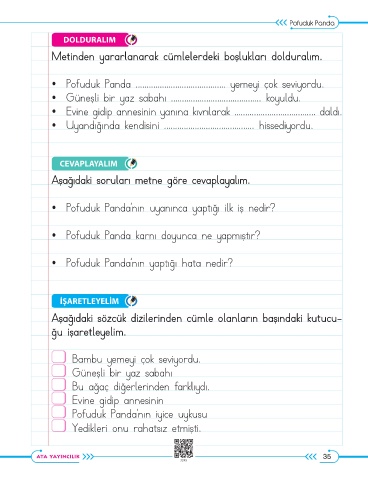 Pofuduk Panda
DOLDURALIM
Metinden yararlanarak cümlelerdeki boşlukları dolduralım.
• Pofuduk Panda ........................................ yemeyi çok seviyordu.
• Güneşli bir yaz sabahı ........................................ koyuldu.
• Evine gidip annesinin yanına kıvrılarak .................................... daldı.
• Uyandığında kendisini ........................................ hissediyordu.
CEVAPLAYALIM
Aşağıdaki soruları metne göre cevaplayalım.
• Pofuduk Panda'nın uyanınca yaptığı ilk iş nedir?
• Pofuduk Panda karnı doyunca ne yapmıştır?
• Pofuduk Panda'nın yaptığı hata nedir?
İŞARETLEYELİM
Aşağıdaki sözcük dizilerinden cümle olanların başındaki kutucu-
ğu işaretleyelim.
Bambu yemeyi çok seviyordu.
Güneşli bir yaz sabahı
Bu ağaç diğerlerinden farklıydı.
Evine gidip annesinin
Pofuduk Panda'nın iyice uykusu
Yedikleri onu rahatsız etmişti.
ATA YAYINCILIK
35